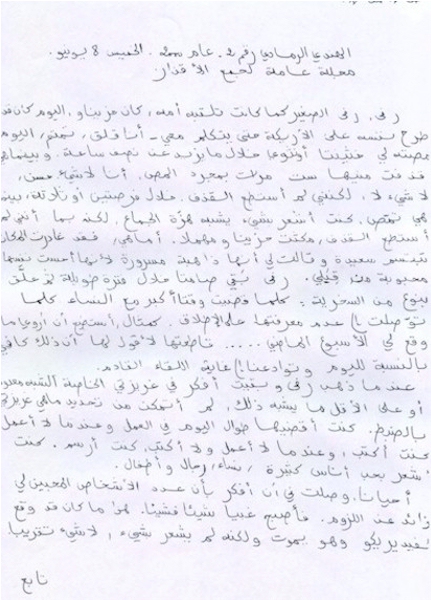 الهندي الرمادي رقم 2. عام 2000. الخميس 8 يونيو.
مجلة عاملة لجمع الأقذار
رفي، رفي الصغير كما كانت تلقبه أمه، كان حزينا، اليوم كان قد
طرح نفسه على الأريكة حتى يتكلم معي - أنا قلق، تمتم، اليوم
مصته لي خلال ما يزيد عن نصف ساعة. وبينما هي
قذفت منيها ست مرات بمجرد المص، أنا لا شيء حسن،
لا شيء لا، لكنني لم أستطع القذف. خلال مرتين أو ثلاثة، بينما
هي تمتص، كنت أشعر بشيء يشبه هزة الجماع، لكنه بما أنني لم
أستطع القذف، مكثت حزينا ومهملا. أما هي، فقد غادرت المكان
تبتسم سعيدة وقالت لي أنها ذاهبة مسرورة لأنها أحست نفسها
محبوبة من قبلي. رفي بقي صامتا خلال فترة طويلة ثم علق
بنوع من السخرية: كلما قضيت وقتا أكبر مع النساء كلما
توصلت إلى عدم معرفتها على الإطلاق. كمثال، أستطيع أن أروي ما
وقع لي الأسبوع الماضي..... قاطعته لأقول لها أن ذلك كافي
بالنسبة لليوم وتوادعنا إلى غاية اللقاء القادم.
عندما ذهب رفي وبقيت أفكر في غريزتي الخاصة
أو على الأقل ما يشبه ذلك، لم أتمكن من تحديد ما هي غريزتي
بالضبط. كنت أقضيها طوال اليوم في العمل وعندما لا أعمل
كنت أكتب، وعندما لا أعمل ولا أكتب، كنت أرسم. كنت
أشعر بحب أناس كثيرة، نساء، رجال وأطفال.
أحيانا، وصلت في أن أفكر بأن عدد الأشخاص المحبين لي
زائد عن اللزوم. فأصبح غنيا شيئا فشيئا. هو ما كان قد وقع
لفيديريكو وهو يموت ولكنه لم يشعر بشيء، لا شيء تقريبا
تابع